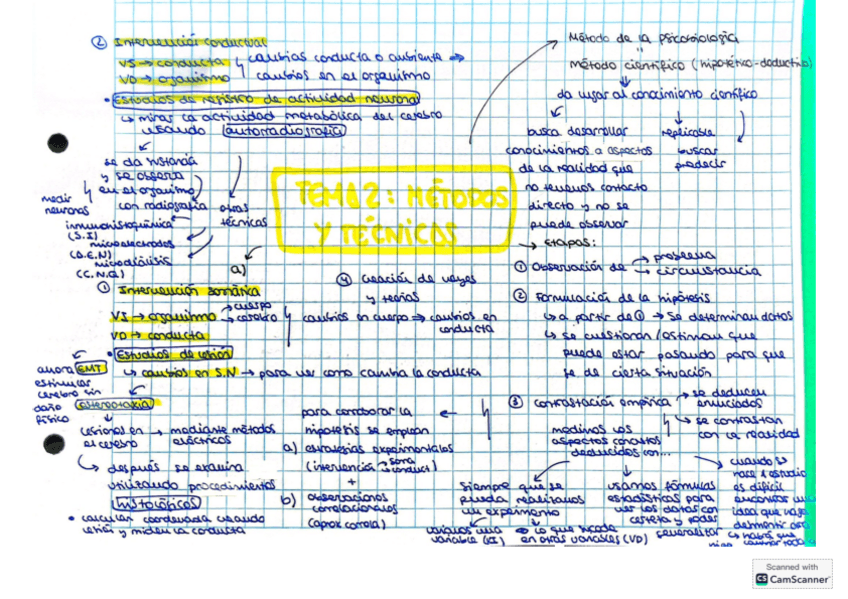 ② Intervención conductual
VI → conducta
VD → organismo
cambios conducta o ambiente ⇒
cambios en el organismo
• Estudios de registro de actividad neuronal
↳ miras la actividad metabólica del cerebro
usando autorradiografía
se da sustancia
y se observa
en el organismo
con radiografía
otras
técnicas
medir
neuronas
inmunohistoquímica
(S.I)
microelectrodos
microdiálisis
(C.N.Q)
a)
TEMA 2: MÉTODOS
Y TÉCNICAS
Método de la psicobiología
método científico (hipotético-deductivo)
da lugar al conocimiento científico
busca desarrollar
conocimientos a aspectos
de la realidad que
no tenemos contacto
directo y no se
puede observar
replicable
buscar
predecir
→ etapas:
① Observación de → problema
→ circunstancia
② Formulación de la hipótesis
↳ a partir de ① → se determinan datos
↳ se cuestionan/estiman que
puede estar pasando para que
se de cierta situación
③ contrastación empírica → se deducen
enunciados
↳ se contrastan
con la realidad
④ Creación de leyes
y teorías
① Intervención somática
VI → organismo → cuerpo
→ cerebro
VD → conducta
cambios en cuerpo → cambios en
conducta
• Estudios de lesión
↳ cambios en S.N → para ver como cambia la conducta
ahora EMT
estimular
cerebro sin
daño
físico
estereotaxia
lesiones en → mediante métodos
el cerebro eléctricos
↳ después se examina
utilizando procedimientos
histológicos
• calcular coordenada usando
lesión y miden la conducta
para corroborar la
hipótesis se emplean
a) estrategias experimentales
(intervención → soma
conduct)
+
b) observaciones
correlacionales
(aprox correla)
medimos los
aspectos concretos
deducidos con...
siempre que se
pueda realizamos
un experimento
variamos una
variable (VI)
⇒ lo que sucede
en otras variables (VD)
usamos fórmulas
estadísticas para
ver los datos con
certeza y poder
generalizar
cuando se
hace el estudio
es difícil
encontrar una
idea que vaya
desmentir otra
↳ habrá que
Scanned with
CS CamScanner